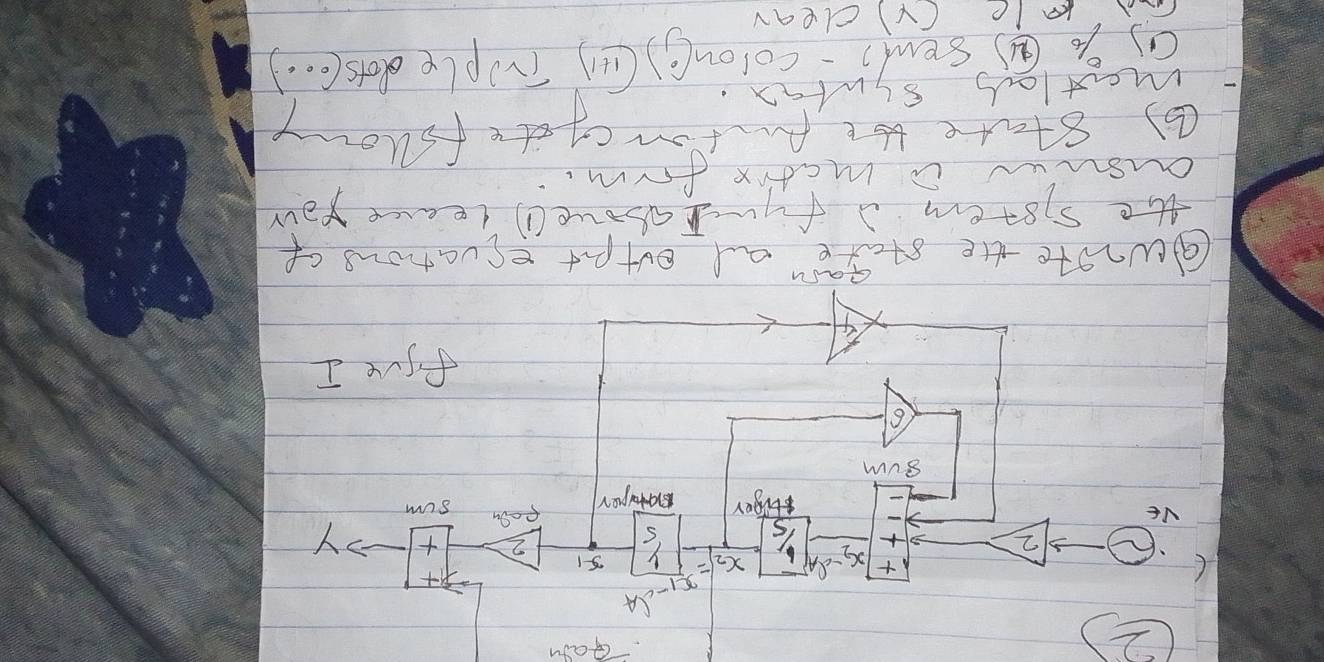 2)
Gain
Ve
2
+
+
-
-
sum
x2-dA
1/s
x2
= x1-dA
1/s
x1
2
Gain
+
+
sum
Y
6
4
Gain
figure I
(a) Write the state and output equations of
the system in figure I above (i) leave your
answer in matrix form.
(b) State the funtion of the following
matlab syntax.
(i) % (ii) semi-colon(;) (iii) Triple dots(...)
(iv) clc (v) clear